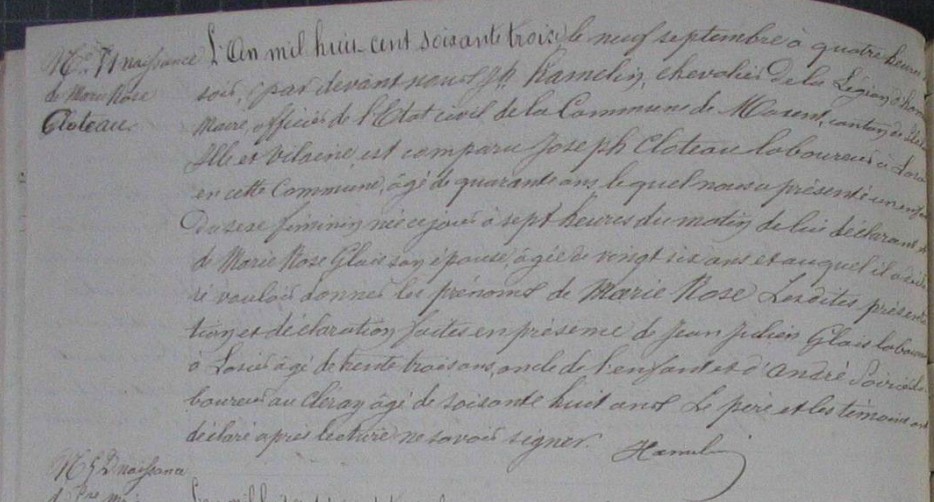 No 71 naissance
de Marie Rose
Cloteau.
L'An mil huit-cent soixante trois, le neuf septembre à quatre heures
soir, par devant nous Jh. Hamelin, chevalier de la Légion d'hon
Maire, officier de l'Etat civil de la Commune de Maxent, canton de
Ille et Vilaine, est comparu Joseph Cloteau laboureur à
en cette Commune, âgé de quarante ans, lequel nous a présenté un enfant
Du sexe féminin née ce jour à sept heures du matin, de lui déclarant et
de Marie Rose Glais son épouse, âgée de vingt six ans et auquel il a
ré vouloir donner les prénoms de Marie Rose Lesdites présenta
tion et déclaration faites en présence de Jean Julien Glais laboureur
à âgé de trente trois ans, oncle de l'enfant et d'André
boureur au Cleray âgé de soixante huit ans. Le père et les témoins ont
déclaré après lecture ne savoir signer.
Hamelin
No naissance